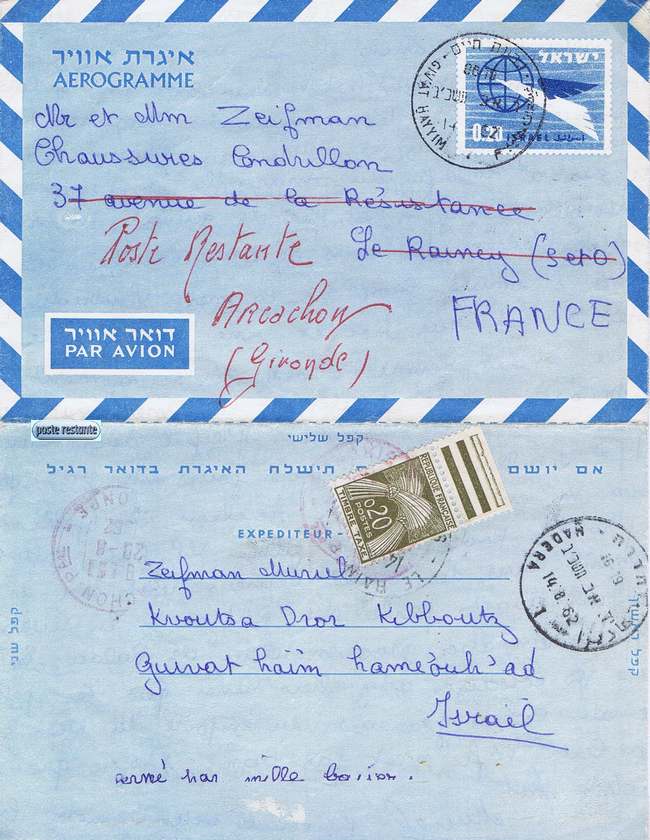 איגרת אוויר
AEROGRAMME
ישראל
0.21
ISRAEL
GIVAT HAYYIM
Mr et Mm Zeifman
Chaussures Cendrillon
37 avenue de la Résistance
Poste Restante Le Raincy (S et O)
Arcachon
FRANCE
(Gironde)
דואר אוויר
PAR AVION
poste restante
קפל שלישי
אם יושם תישלח האיגרת בדואר רגיל
REPUBLIQUE FRANÇAISE
0,20
POSTES
TIMBRE TAXE
EXPEDITEUR
HADERA
16-9
14.8.62
Zeifman Muriel
Kvoutsa Dror Kibboutz
Guivat haïm hameouh'ad
Israël
קפל שני
mille